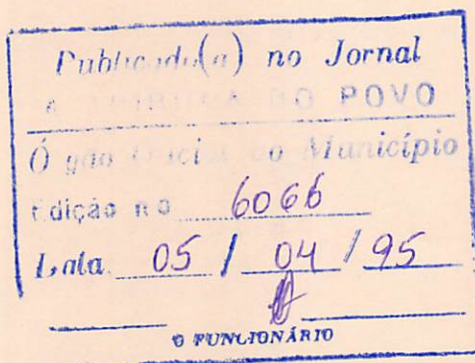 Publicado(a) no Jornal
A TRIBUNA DO POVO
Órgão Oficial do Município
Edição no 6066
Data 05 / 04 / 95
O FUNCIONÁRIO